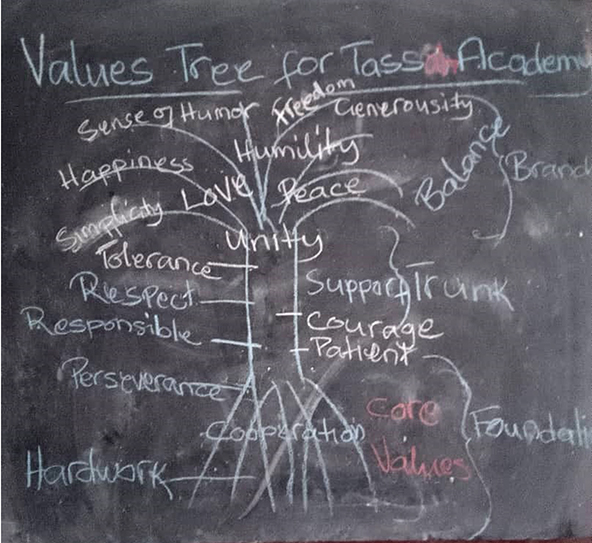 Values Tree for Tassa Academ
Sense of Humor
freedom
Generousity
Humility
Happiness
Love
Peace
Balance
Branc
Simplicity
Unity
Tolerance
Respect
Support
Trunk
Responsible
Courage
Patient
Perseverance
Cooperation
Core
Values
Foundati
Hardwork